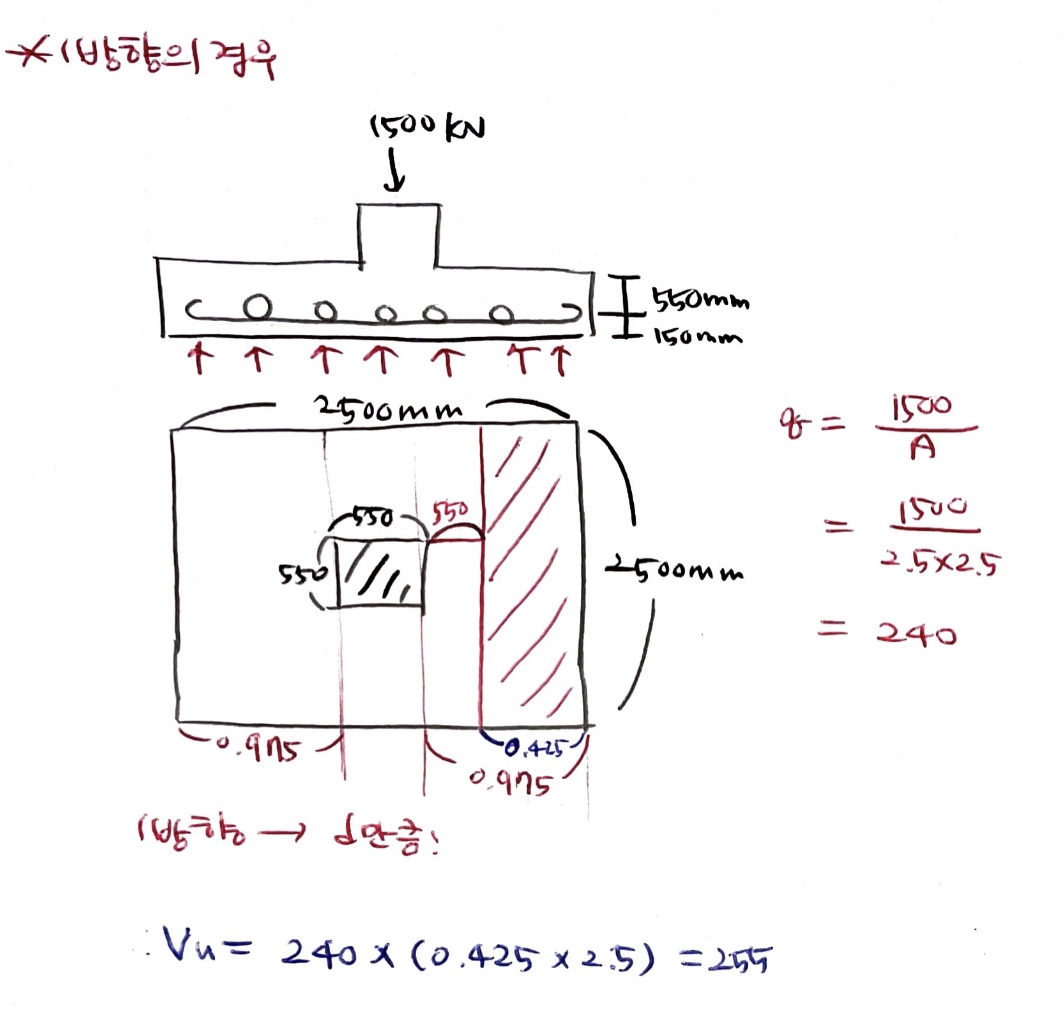 * 1방향의 경우
1500 kN
550mm
150mm
2500mm
q = 1500 / A
= 1500 / 2.5×2.5
= 240
550
550
550
2500mm
0.975
0.425
0.975
1방향 → d만큼!
∴ Vu = 240 × (0.425 × 2.5) = 255